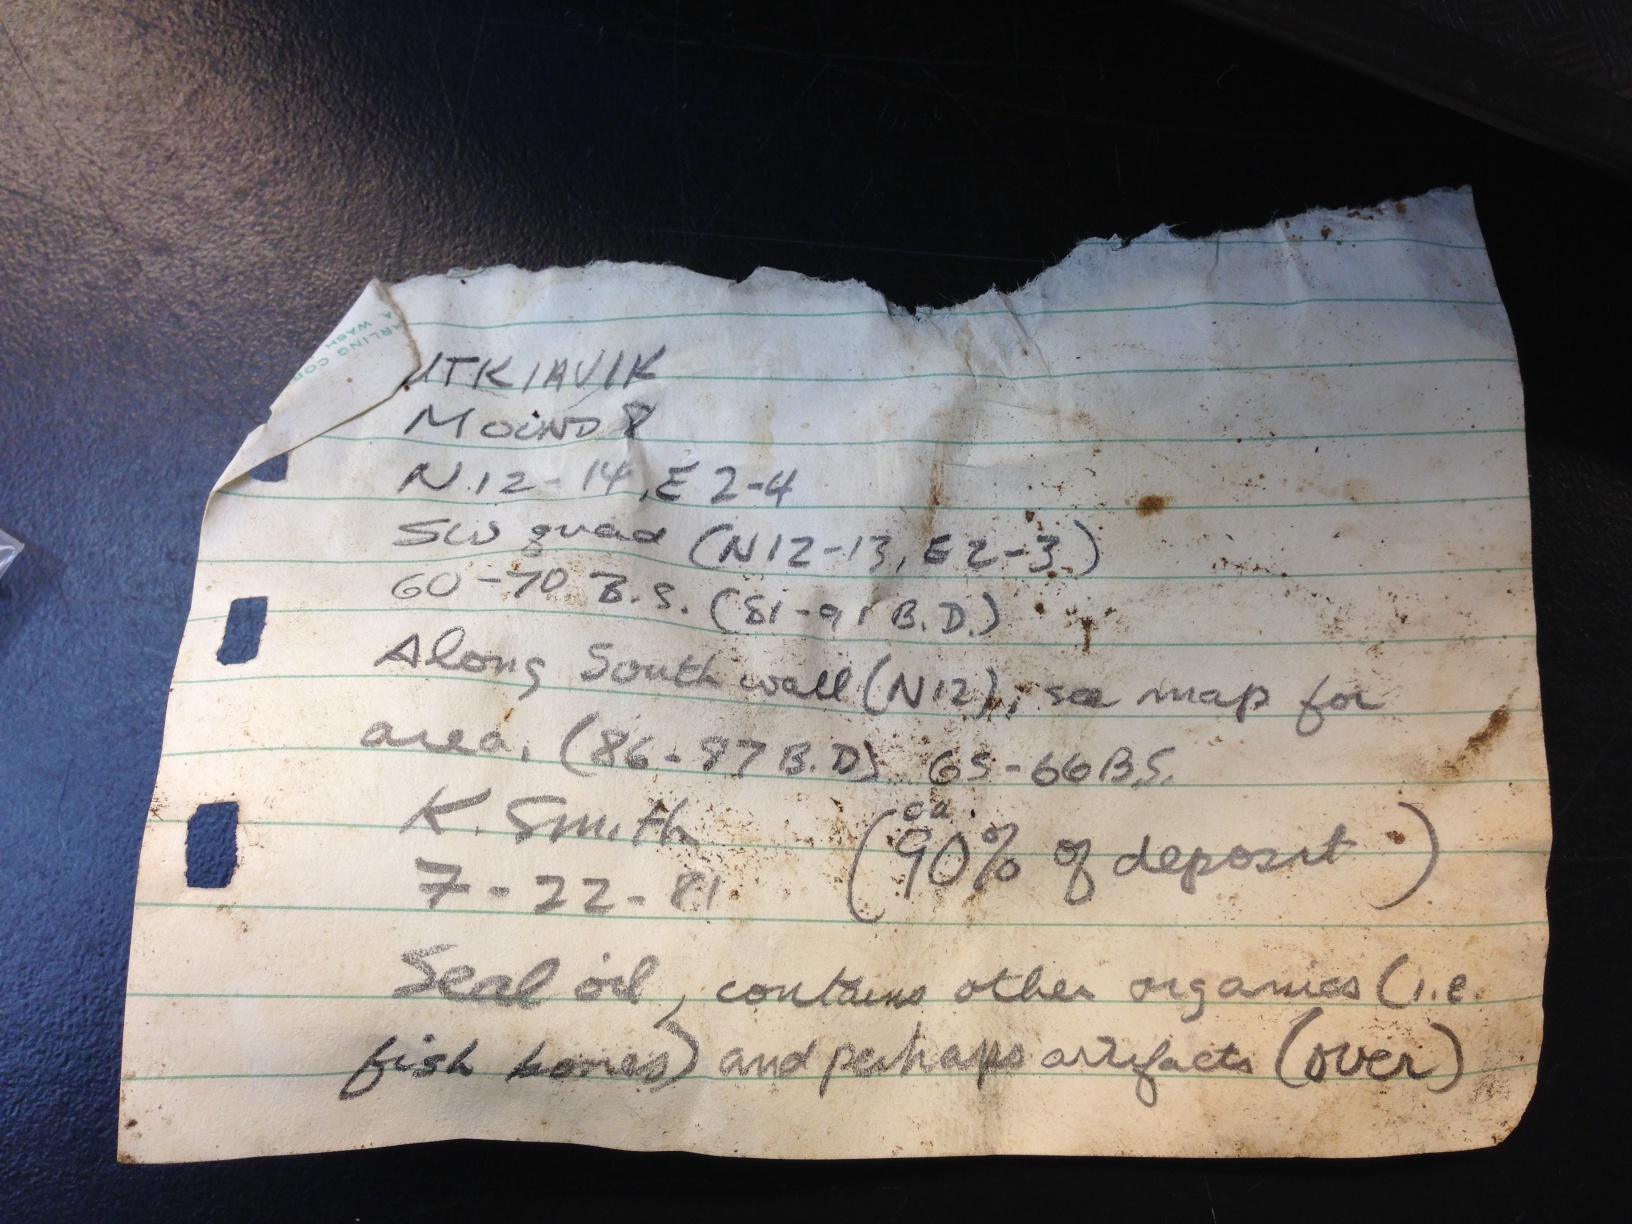 ARLING COR
A, WASH
UTKIAVIK
MOUND 8
N.12-14, E 2-4
SW quad (N12-13, E2-3)
60-70 B.S. (81-91 B.D.)
Along South wall (N12), see map for
area. (86-87 B.D.) 65-66 B.S.
K. Smith
7-22-81
(ca. 90% of deposit)
Seal oil, contains other organics (i.e.
fish bones) and perhaps artifacts (over)